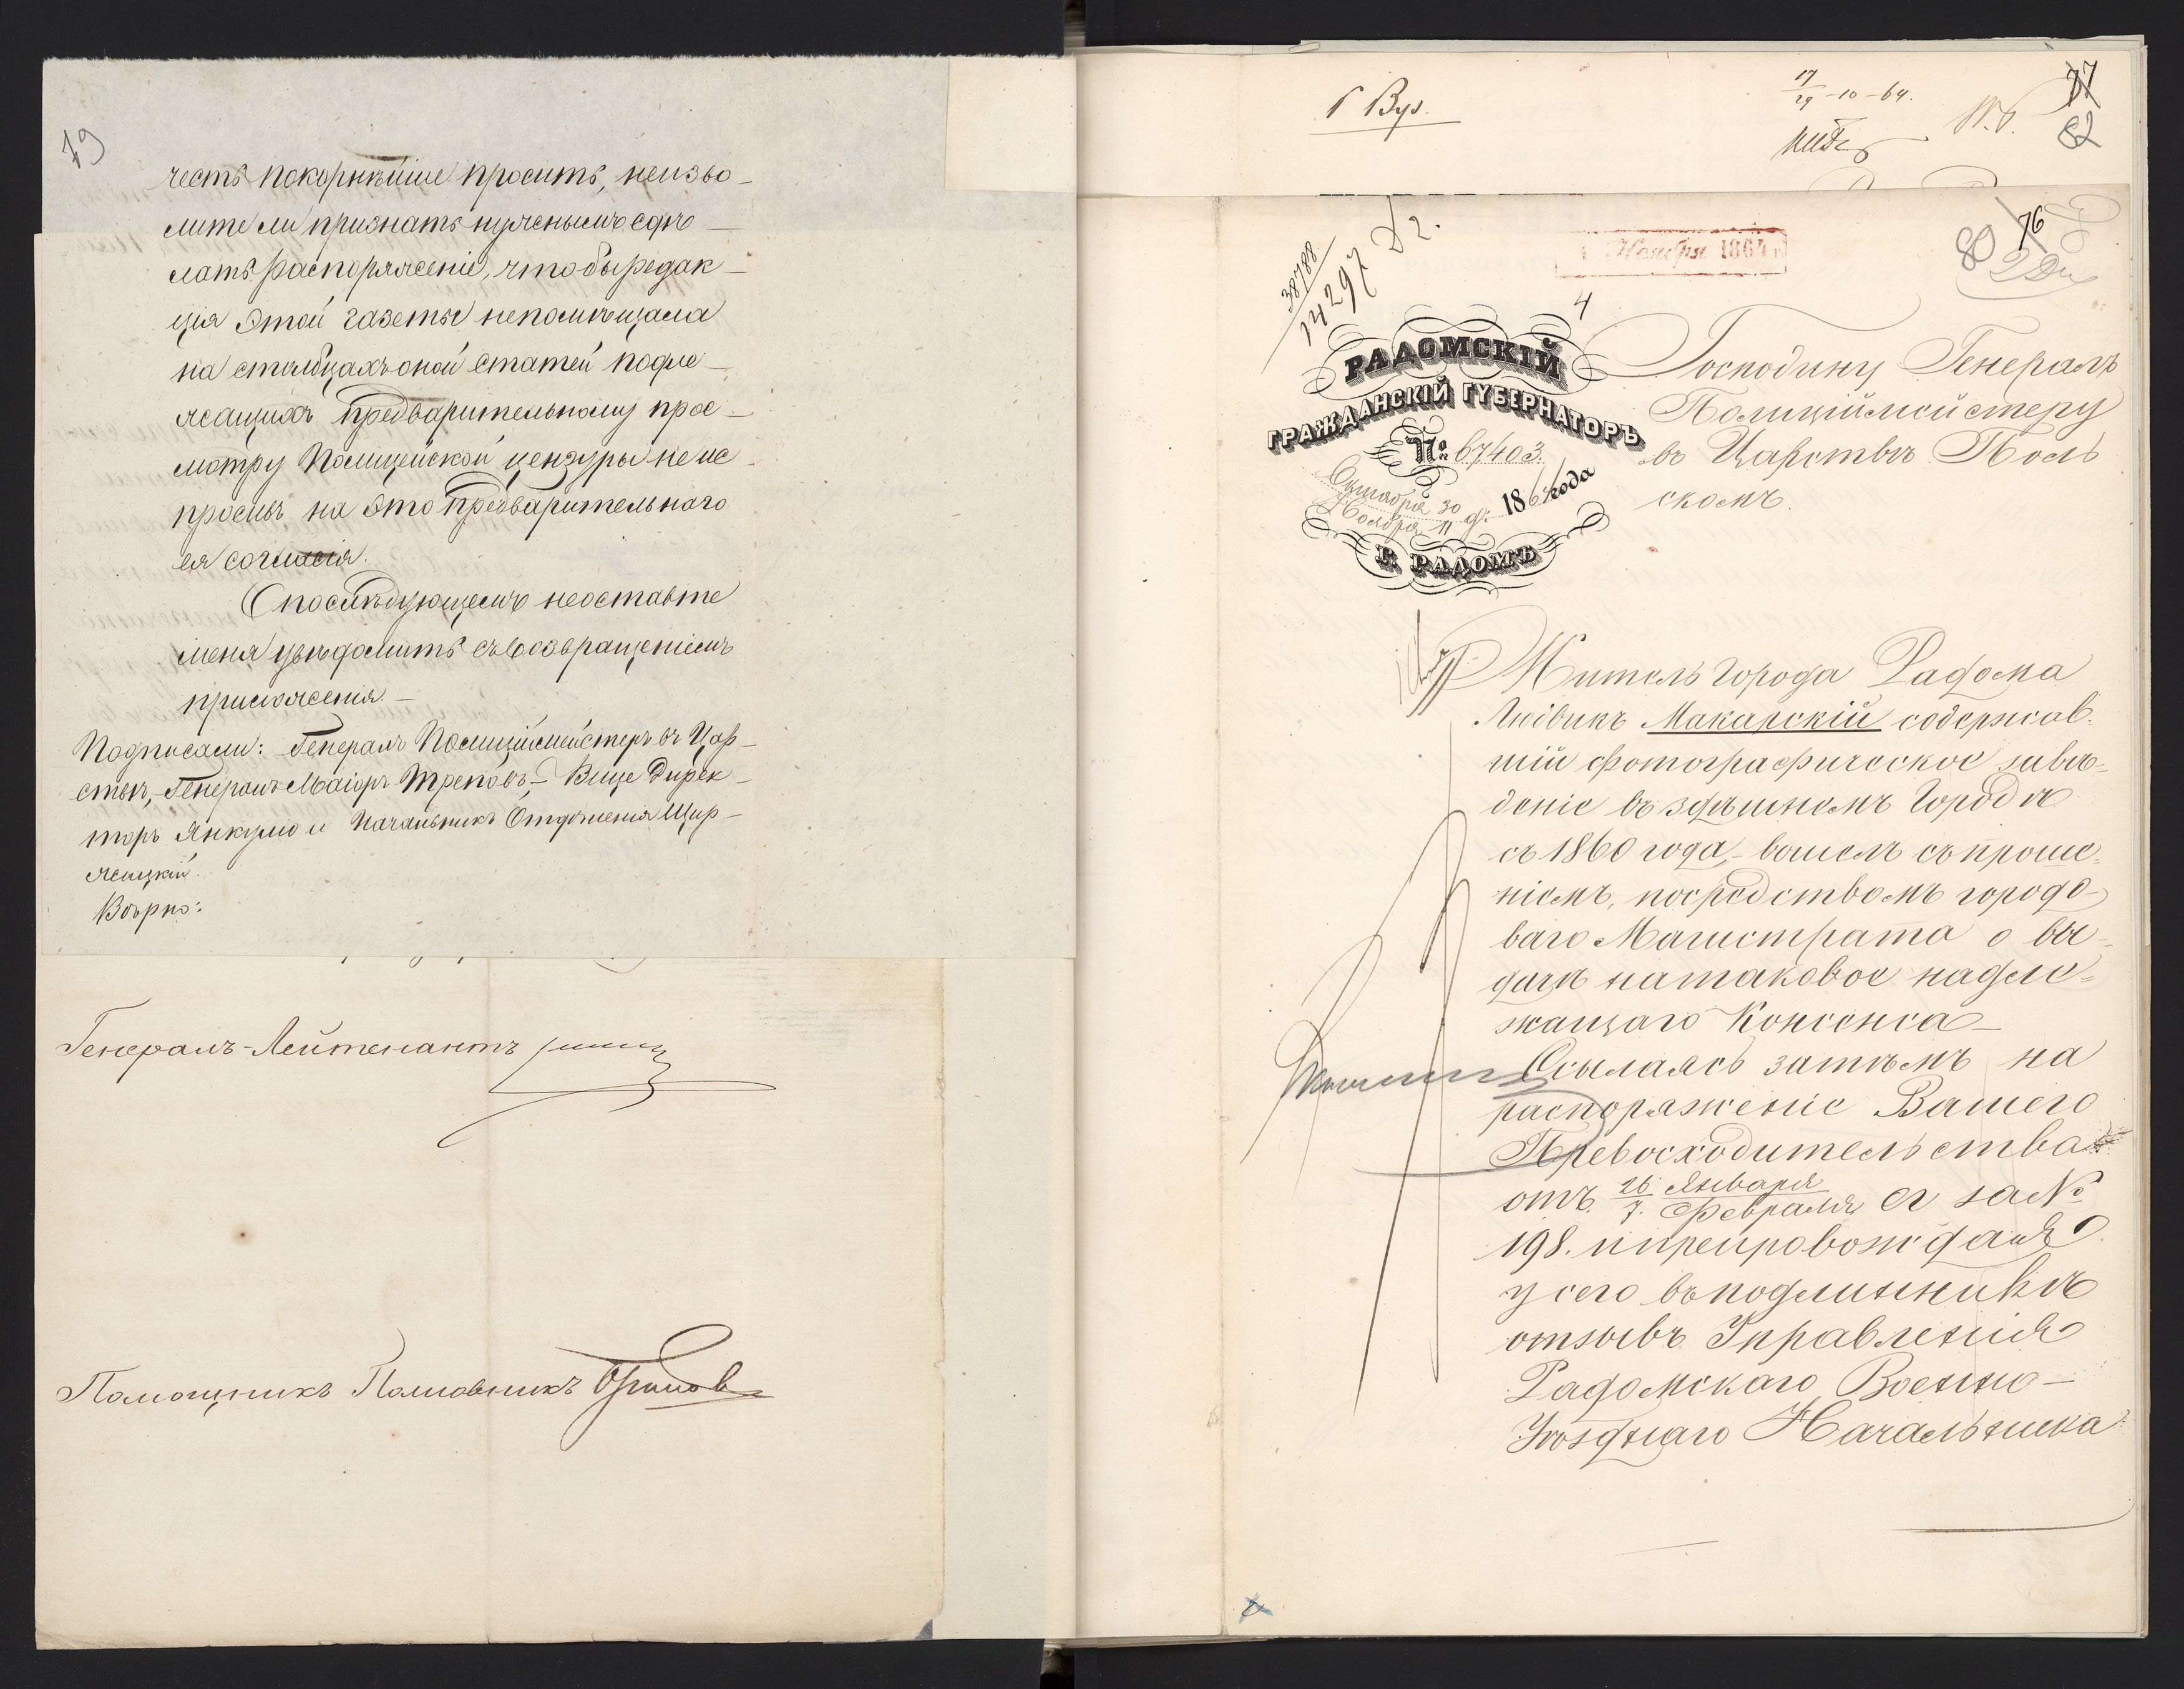 79
честь покорнѣйше просить, неизво-
лите ли признать нужнымъ сдѣ-
лать распоряженіе, чтобы редак-
ція этой газеты непомѣщала
на столбцахъ оной статей подле-
жащихъ предварительному прос-
мотру Полицейской цензуры не ис-
просивъ на это предварительнаго
ея согласія.
О послѣдующемъ неоставьте
меня увѣдомить съ возвращеніемъ
приложенія.-
Подписали: Генералъ Полиціймейстеръ въ Цар-
ствѣ, Генералъ Маіоръ Треповъ,- Вице Дирек-
торъ Янкуліо и Начальникъ Отдѣленія Щир-
жецкій.
Вѣрно:
Генералъ-Лейтенантъ
Помощникъ Полковникъ
17/29-10-64.
77
82
38788
14297 Д2.
4
Ноября 1864 г
80 76
РАДОМСКІЙ
ГРАЖДАНСКІЙ ГУБЕРНАТОРЪ
№ 67403.
Октября 30
Ноября 11 д. 1864 года
Г. РАДОМЪ
Господину Генералъ
Полиціймейстеру
въ Царствѣ Поль
скомъ.
Житель города Радома
Людвикъ Макарскій содержав-
шій фотографическое заве-
деніе въ здѣшнемъ городѣ
съ 1860 года,- вошелъ съ проше-
ніемъ, посредствомъ городо-
ваго Магистрата о вы-
дачѣ на таковое надле-
жащаго Консенса-
Ссылаясь затѣмъ на
распоряженіе Вашего
Превосходительства
отъ 26 Января / 7 Февраля сг за №
198. и препровождая
у сего въ подлинникѣ
отзывъ Управленія
Радомскаго Военно-
Уѣзднаго Начальника